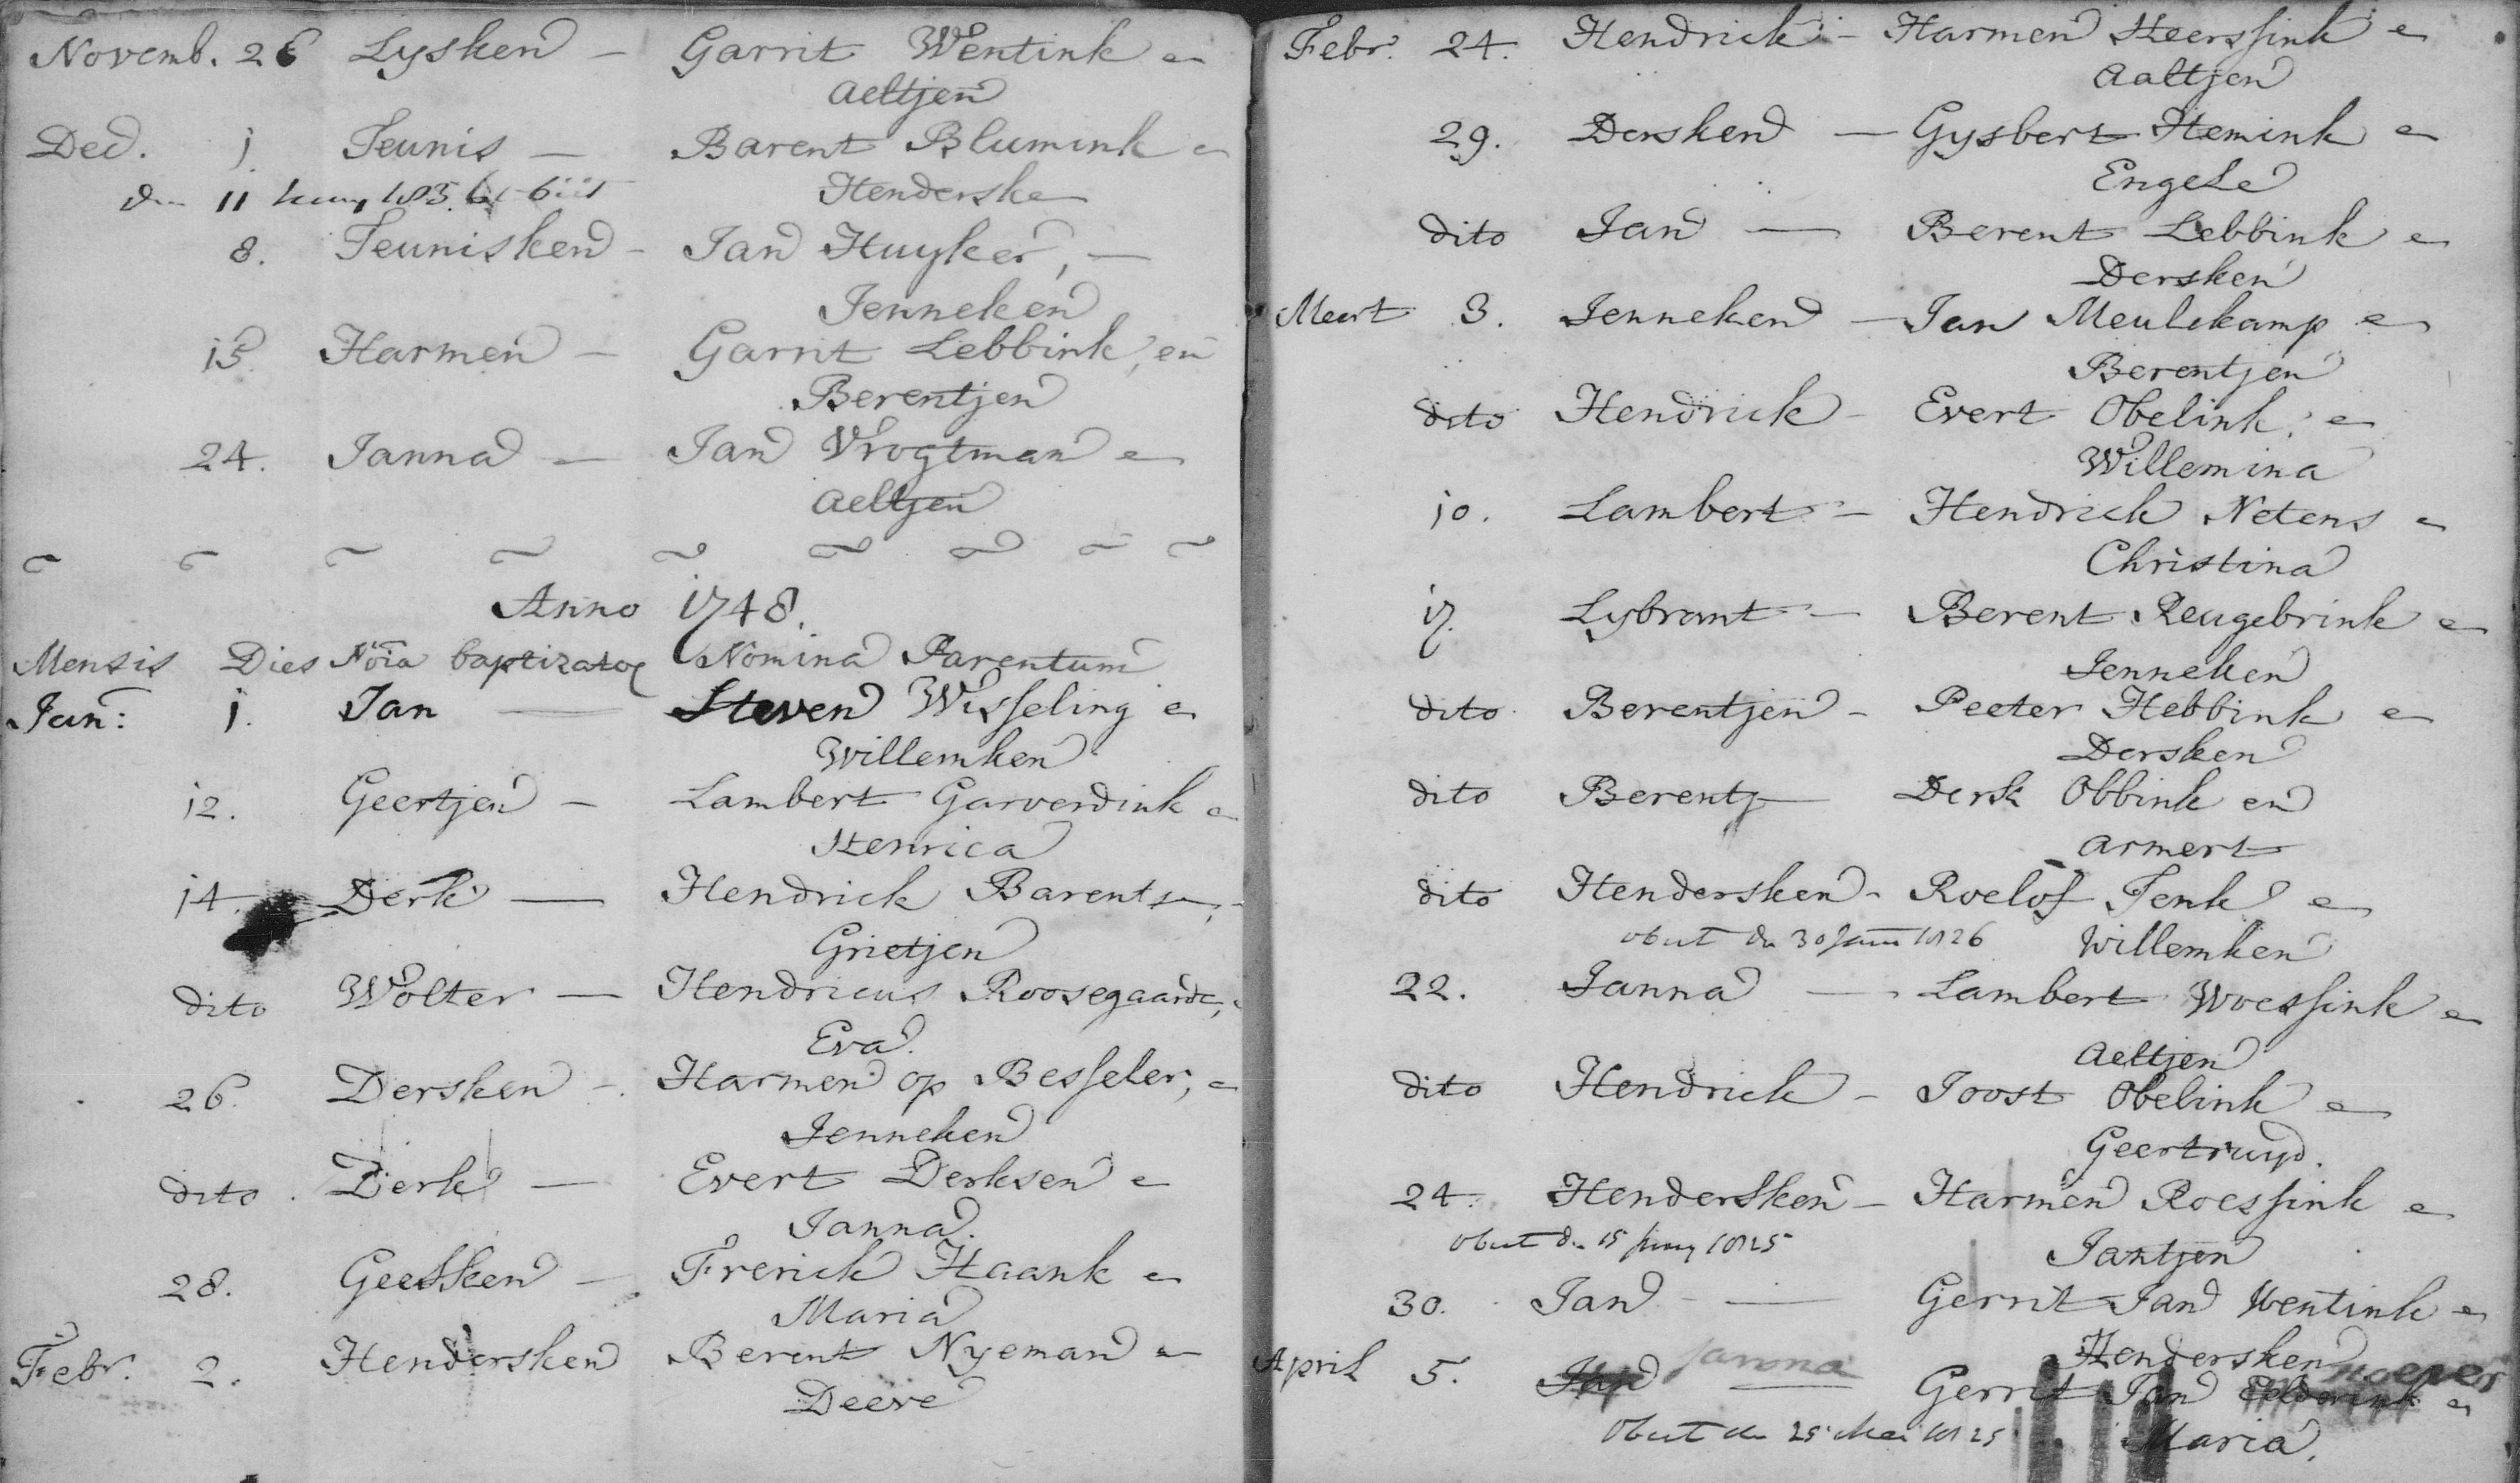 Novemb. 26 Lysken - Garrit Wentink e
Aeltjen
Dec. 1 Teunis - Barent Blumink e
11 obiit Henderske
8. Teunisken - Jan Huyker, -
Jenneken
15 Harmen - Garrit Lebbink, en
Berentjen
24. Janna - Jan Vrogtman e
Aeltjen
Anno 1748.
Mensis Dies Nōīa baptizator Nomina Parentum
Jan: 1. Jan - Steven Wisseling e
Willemken
12. Geertjen - Lambert Garverdink e
Henrica
14. Derk - Hendrick Barents
Grietjen
dito Wolter - Hendricus Roosegaarde,
Eva.
26. Dersken - Harmen op Besseler, e
Jenneken
dito Derk - Evert Derksen e
Janna.
28. Geesken - Frerick Haank e
Maria
Febr. 2. Hendersken Berent Nyeman e
Deeve
Febr. 24. Hendrick - Harmen Heerssink e
Aaltjen
29. Dersken - Gysbert Hemink e
Engele
dito Jan - Berent Lebbink e
Dersken
Meert 3. Jenneken - Jan Meulekamp e
Berentjen
dito Hendrick - Evert Obelink, e
Willemina
10. Lambert - Hendrick Netens e
Christina
17. Sybrant - Berent Reugebrink e
Jenneken
dito Berentjen - Peeter Hebbink e
Dersken
dito Berentj - Derk Obbink en
Armert
dito Hendersken - Roelof Tenk e
obiit de 30 1826 Willemken
22. Janna - Lambert Woessink e
Aeltjen
dito Hendrick - Joost Obelink e
Geertruyd.
24. Hendersken - Harmen Roessink e
obiit d. 15 1825 Jantjen
30. Jan - Gerrit Jan Wentink e
Hendersken
April 5. Jan Janna - Gerrit Jan Eelderink e
Obiit de 25 Mei 1825 Maria.